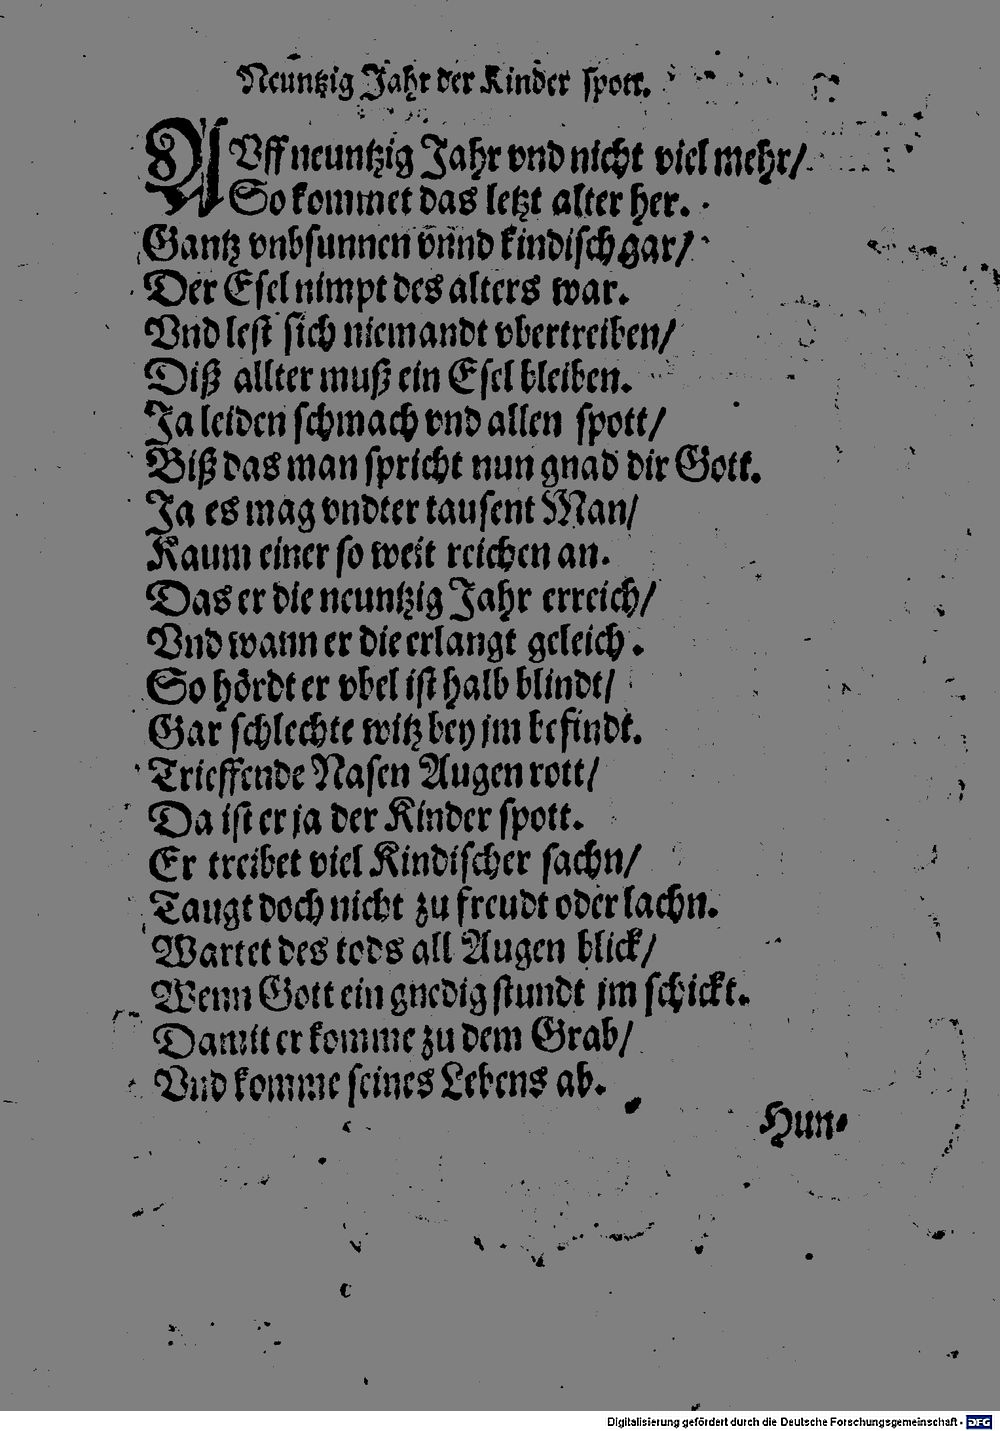 Neuntzig Jahr der Kinder spott.
AVff neuntzig Jahr vnd nicht viel mehr/
So kommet das letzt alter her.
Gantz vnbsunnen vnnd kindisch gar/
Der Esel nimpt des alters war.
Vnd lest sich niemandt vbertreiben/
Diß allter muß ein Esel bleiben.
Ja leiden schmach vnd allen spott/
Biß das man spricht nun gnad dir Gott.
Ja es mag vndter tausent Man/
Kaum einer so weit reichen an.
Das er die neuntzig Jahr erreich/
Vnd wann er die erlangt geleich.
So hördt er vbel ist halb blindt/
Gar schlechte witz bey jm befindt.
Trieffende Nasen Augen rott/
Da ist er ja der Kinder spott.
Er treibet viel Kindischer sachn/
Taugt doch nicht zu freudt oder lachn.
Wartet des tods all Augen blick/
Wenn Gott ein gnedig stundt jm schickt.
Damit er komme zu dem Grab/
Vnd komme seines Lebens ab.
Hun-
Digitalisierung gefördert durch die Deutsche Forschungsgemeinschaft - DFG